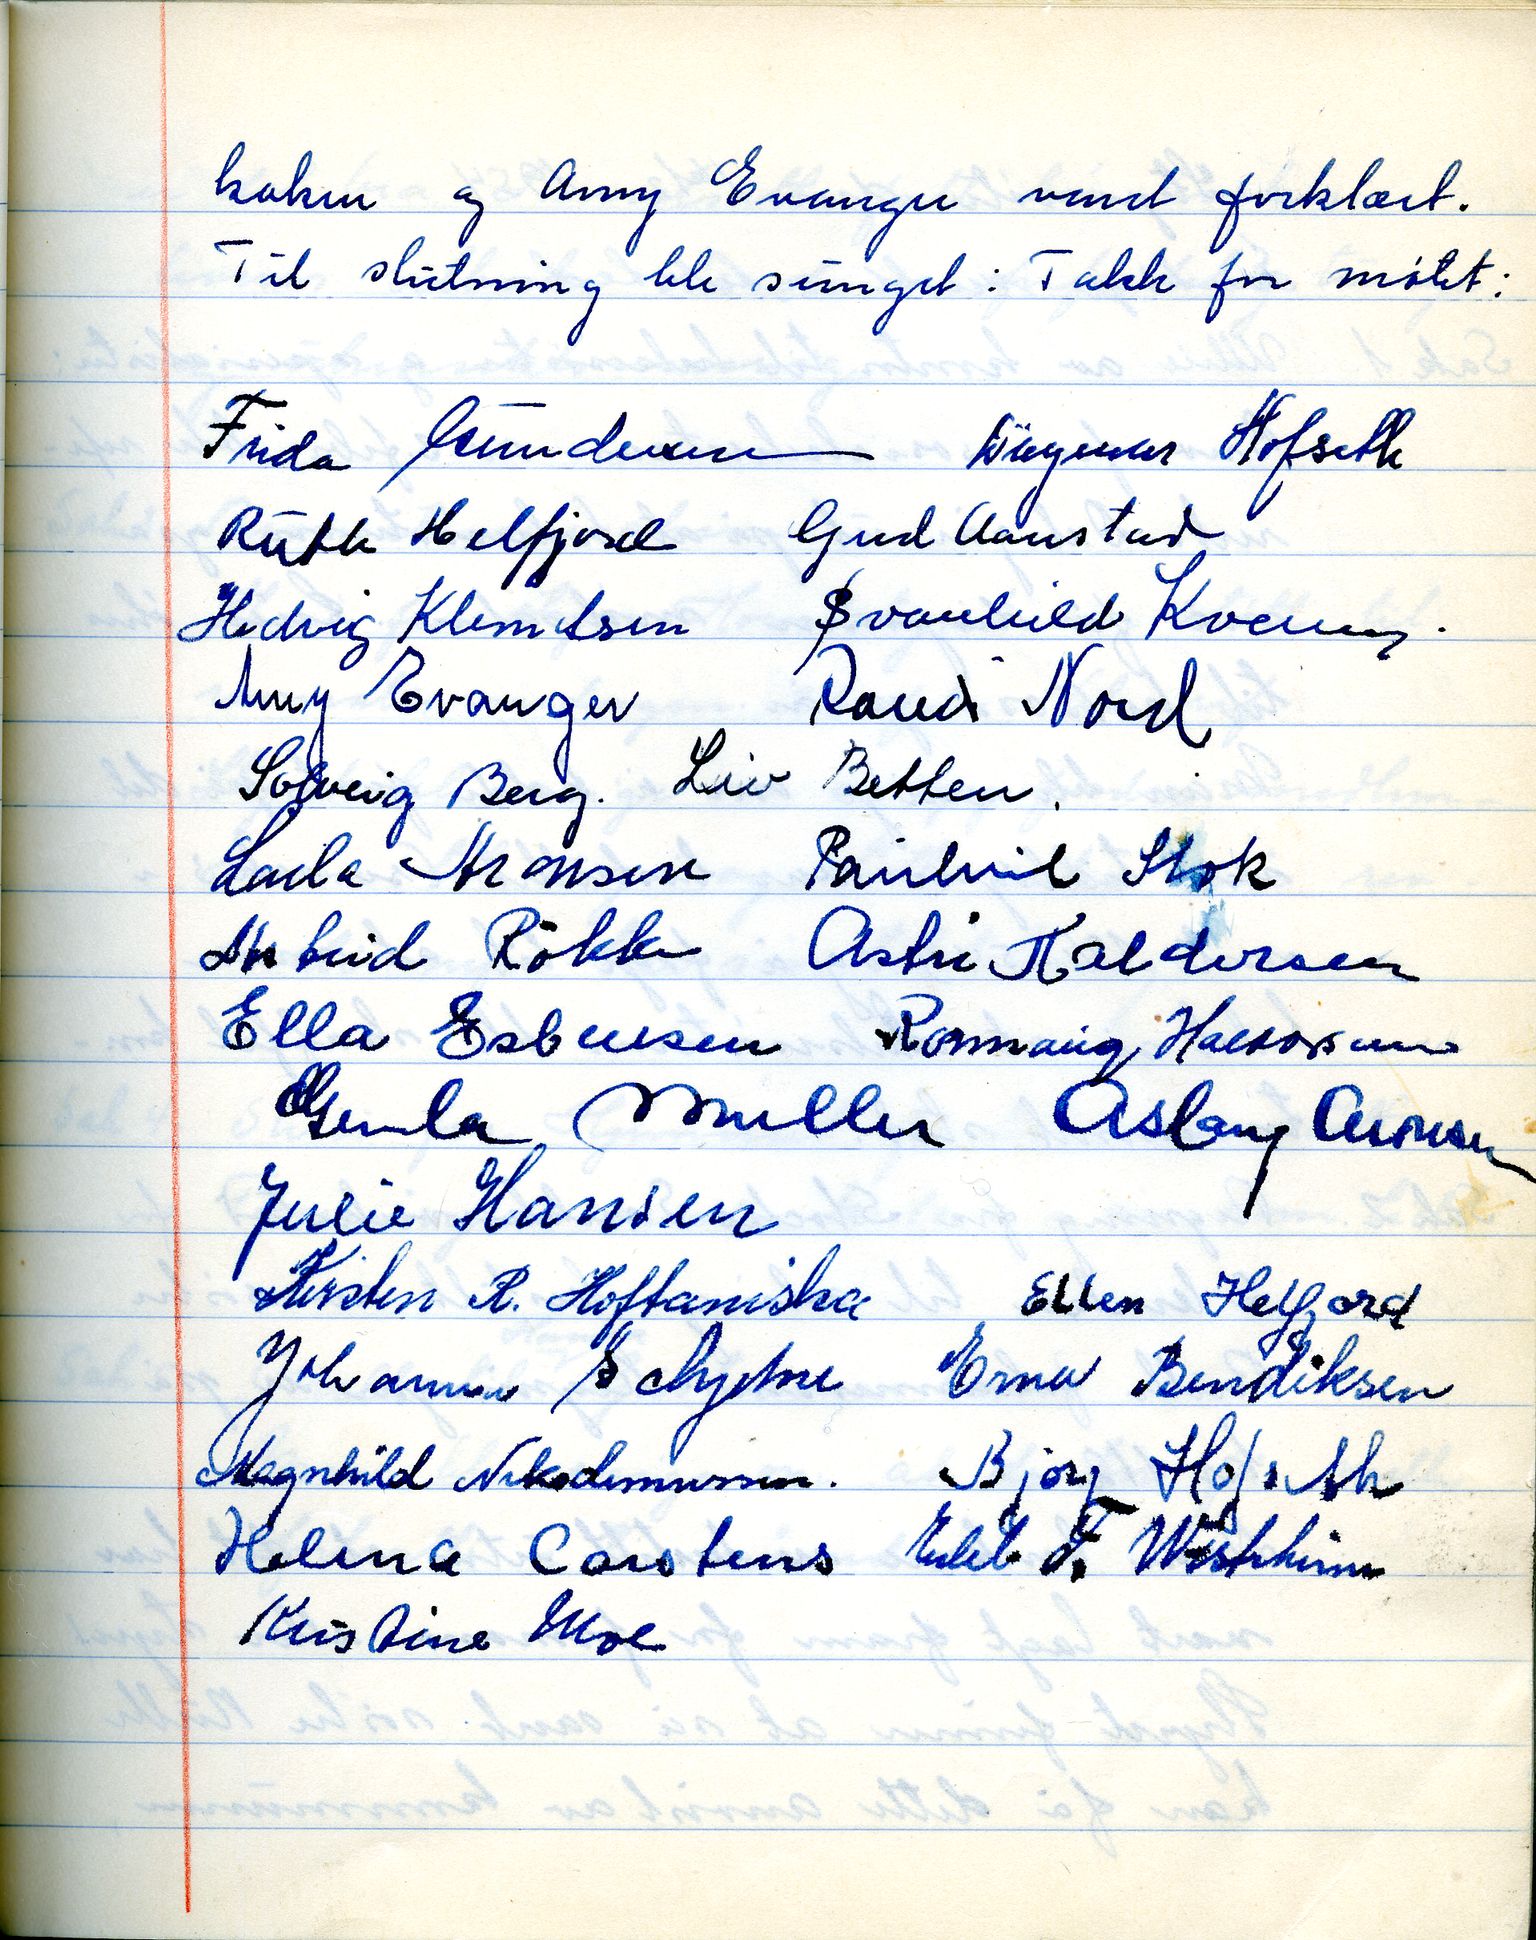 kaken og Amy Evanger vant forklæet.
Til slutning ble sunget: Takk for møtet:
Frida Gundersen Dagmar Hofseth
Ruth Helfjord Gud Aanstad
Hedvig Klemetsen Svanhild Kvening.
Amy Evanger Randi Nord
Solveig Berg. Liv Betten.
Laila Aronsen Ranheid Stok
Astrid Rökke Astri Haldorsen
Ella Esbensen Rønnaug Halvorsen
Gerda Müller Aslaug Aronsen
Julie Hansen
Kirsten R. Hoftaniska Ellen Helfjord
Johanne Schytme Erna Bendiksen
Magnhild Nikodemussen. Bjørg Hofseth
Helena Carstens F. Westrheim
Kristine Moe